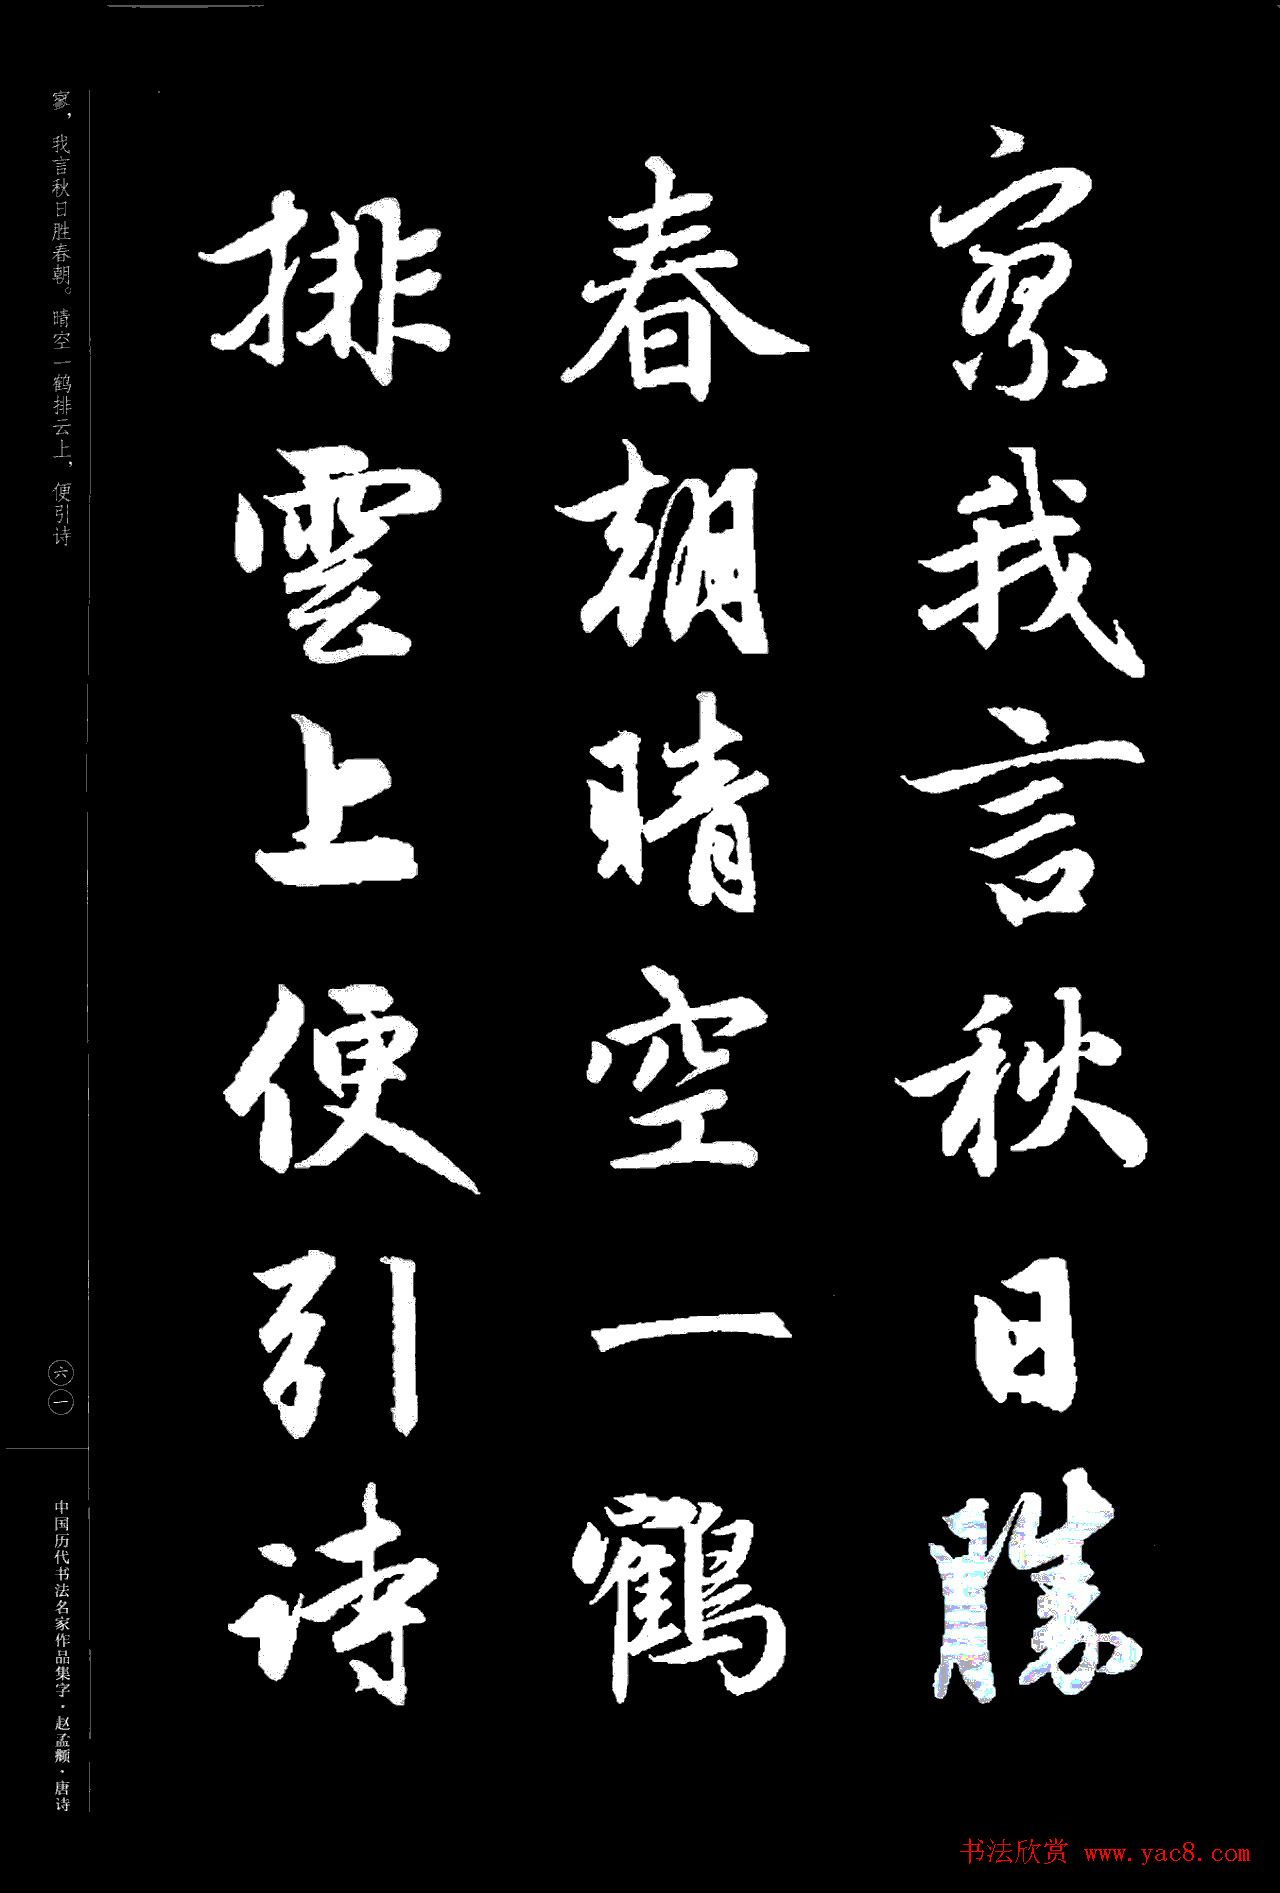 寥我言秋日勝
春朝晴空一鶴
排雲上便引詩
寥，我言秋日胜春朝。晴空一鹤排云上，便引诗
六一
中国历代书法名家作品集字·赵孟頫·唐诗
书法欣赏 www.yac8.com